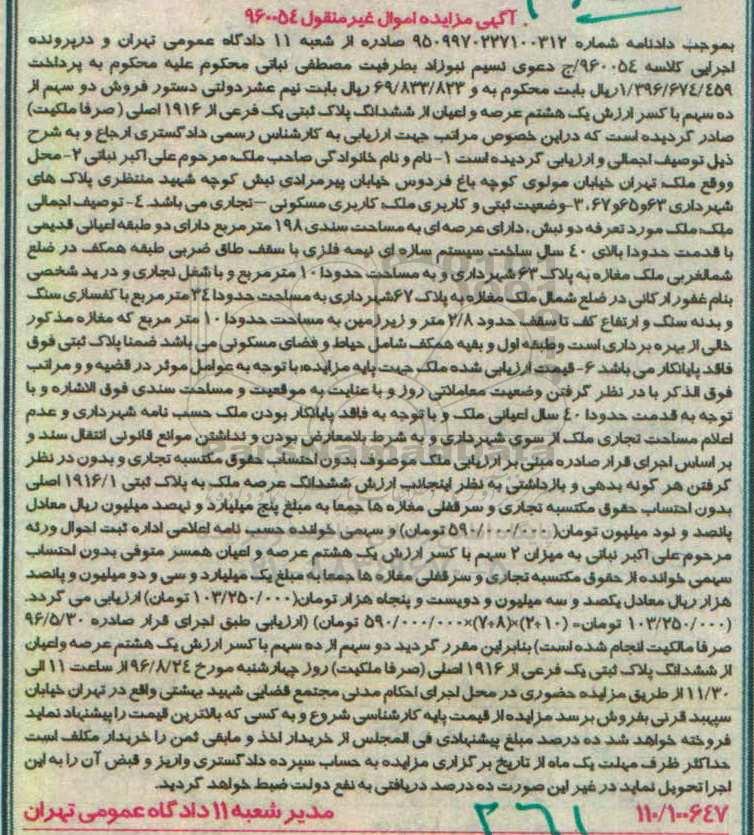 آگهی مزایده اموال غیرمنقول ۹۶۰۰۵۴
بموجب دادنامه شماره ۹۵۰۹۹۷۰۲۲۷۱۰۰۳۱۲ صادره از شعبه ۱۱ دادگاه عمومی تهران و درپرونده
اجرایی کلاسه ۹۶۰۰۵۴/ج دعوی نسیم نبوزاد بطرفیت مصطفی نباتی محکوم علیه محکوم به پرداخت
۱/۳۹۶/۶۷۴/۴۵۹ریال بابت محکوم به و ۶۹/۸۳۳/۸۲۳ ریال بابت نیم عشردولتی دستور فروش دو سهم از
ده سهم با کسر ارزش یک هشتم عرصه و اعیان از ششدانگ پلاک ثبتی یک فرعی از ۱۹۱۶ اصلی ( صرفا ملکیت)
صادر گردیده است که دراین خصوص مراتب جهت ارزیابی به کارشناس رسمی دادگستری ارجاع و به شرح
ذیل توصیف اجمالی و ارزیابی گردیده است ۱- نام و نام خانوادگی صاحب ملک: مرحوم علی اکبر نباتی ۲- محل
ووقع ملک: تهران خیابان مولوی کوچه باغ فردوس خیابان پیرمرادی نبش کوچه شهید منتظری پلاک های
شهرداری ۶۳و۶۵و۶۷، ۳-وضعیت ثبتی و کاربری ملک: کاربری مسکونی –تجاری می باشد. ۴- توصیف اجمالی
ملک: ملک مورد تعرفه دو نبش، دارای عرصه ای به مساحت سندی ۱۹۸ مترمربع دارای دو طبقه اعیانی قدیمی
با قدمت حدودا بالای ۴۰ سال ساخت سیستم سازه ای نیمه فلزی با سقف طاق ضربی طبقه همکف در ضلع
شمالغربی ملک مغازه به پلاک ۶۳ شهرداری و به مساحت حدودا ۱۰ مترمربع و با شغل نجاری و در ید شخصی
بنام غفور ارکانی در ضلع شمال ملک مغازه به پلاک ۶۷شهرداری به مساحت حدودا ۳۴ متر مربع با کفسازی سنگ
و بدنه سنگ و ارتفاع کف تا سقف حدود ۲/۸ متر و زیرزمین به مساحت حدودا ۱۰ متر مربع که مغازه مذکور
خالی از بهره برداری است وطبقه اول و بقیه همکف شامل حیاط و فضای مسکونی می باشد ضمنا پلاک ثبتی فوق
فاقد پایانکار می باشد ۶- قیمت ارزیابی شده ملک جهت پایه مزایده: با توجه به عوامل موثر در قضیه و و مراتب
فوق الذکر با در نظر گرفتن وضعیت معاملاتی روز و با عنایت به موقعیت و مساحت سندی فوق الاشاره و با
توجه به قدمت حدودا ۴۰ سال اعیانی ملک و با توجه به فاقد پایانکار بودن ملک حسب نامه شهرداری و عدم
اعلام مساحت تجاری ملک از سوی شهرداری و به شرط بلامعارض بودن و نداشتن موانع قانونی انتقال سند و
بر اساس اجرای قرار صادره مبنی بر ارزیابی ملک موصوف بدون احتساب حقوق مکتسبه تجاری و بدون در نظر
گرفتن هر گونه بدهی و بازداشتی به نظر اینجانب ارزش ششدانگ عرصه ملک به پلاک ثبتی ۱۹۱۶/۱ اصلی
بدون احتساب حقوق مکتسبه تجاری و سرقفلی مغازه ها جمعا به مبلغ پنج میلیارد و نهصد میلیون ریال معادل
پانصد و نود میلیون تومان(۵۹۰/۰۰۰/۰۰۰ تومان) و سهمی خوانده حسب نامه اعلامی اداره ثبت احوال ورثه
مرحوم علی اکبر نباتی به میزان ۲ سهم با کسر ارزش یک هشتم عرصه و اعیان همسر متوفی بدون احتساب
سهمی خوانده از حقوق مکتسبه تجاری و سرقفلی مغازه ها جمعا به مبلغ یک میلیارد و سی و دو میلیون و پانصد
هزار ریال معادل یکصد و سه میلیون و دویست و پنجاه هزار تومان(۱۰۳/۲۵۰/۰۰۰ تومان) ارزیابی می گردد.
(۱۰۳/۲۵۰/۰۰۰ تومان= (۱۰÷۲)×(۸÷۷)×۵۹۰/۰۰۰/۰۰۰ تومان) (ارزیابی طبق اجرای قرار صادره ۹۶/۵/۳۰
صرفا مالکیت انجام شده است) بنابراین مقرر گردید دو سهم از ده سهم با کسر ارزش یک هشتم عرصه واعیان
از ششدانگ پلاک ثبتی یک فرعی از ۱۹۱۶ اصلی (صرفا ملکیت) روز چهارشنبه مورخ ۹۶/۸/۲۴ از ساعت ۱۱ الی
۱۱/۳۰ از طریق مزایده حضوری در محل اجرای احکام مدنی مجتمع قضایی شهید بهشتی واقع در تهران خیابان
سپهبد قرنی بفروش برسد مزایده از قیمت پایه کارشناسی شروع و به کسی که بالاترین قیمت را پیشنهاد نماید
فروخته خواهد شد ده درصد مبلغ پیشنهادی فی المجلس از خریدار اخذ و مابقی ثمن را خریدار مکلف است
حداکثر ظرف مهلت یک ماه از تاریخ برگزاری مزایده به حساب سپرده دادگستری واریز و قبض آن را به این
اجرا تحویل نماید در غیر این صورت ده درصد دریافتی به نفع دولت ضبط خواهد گردید.
۱۱۰/۱۰۰۶۴۷
مدیر شعبه ۱۱ دادگاه عمومی تهران